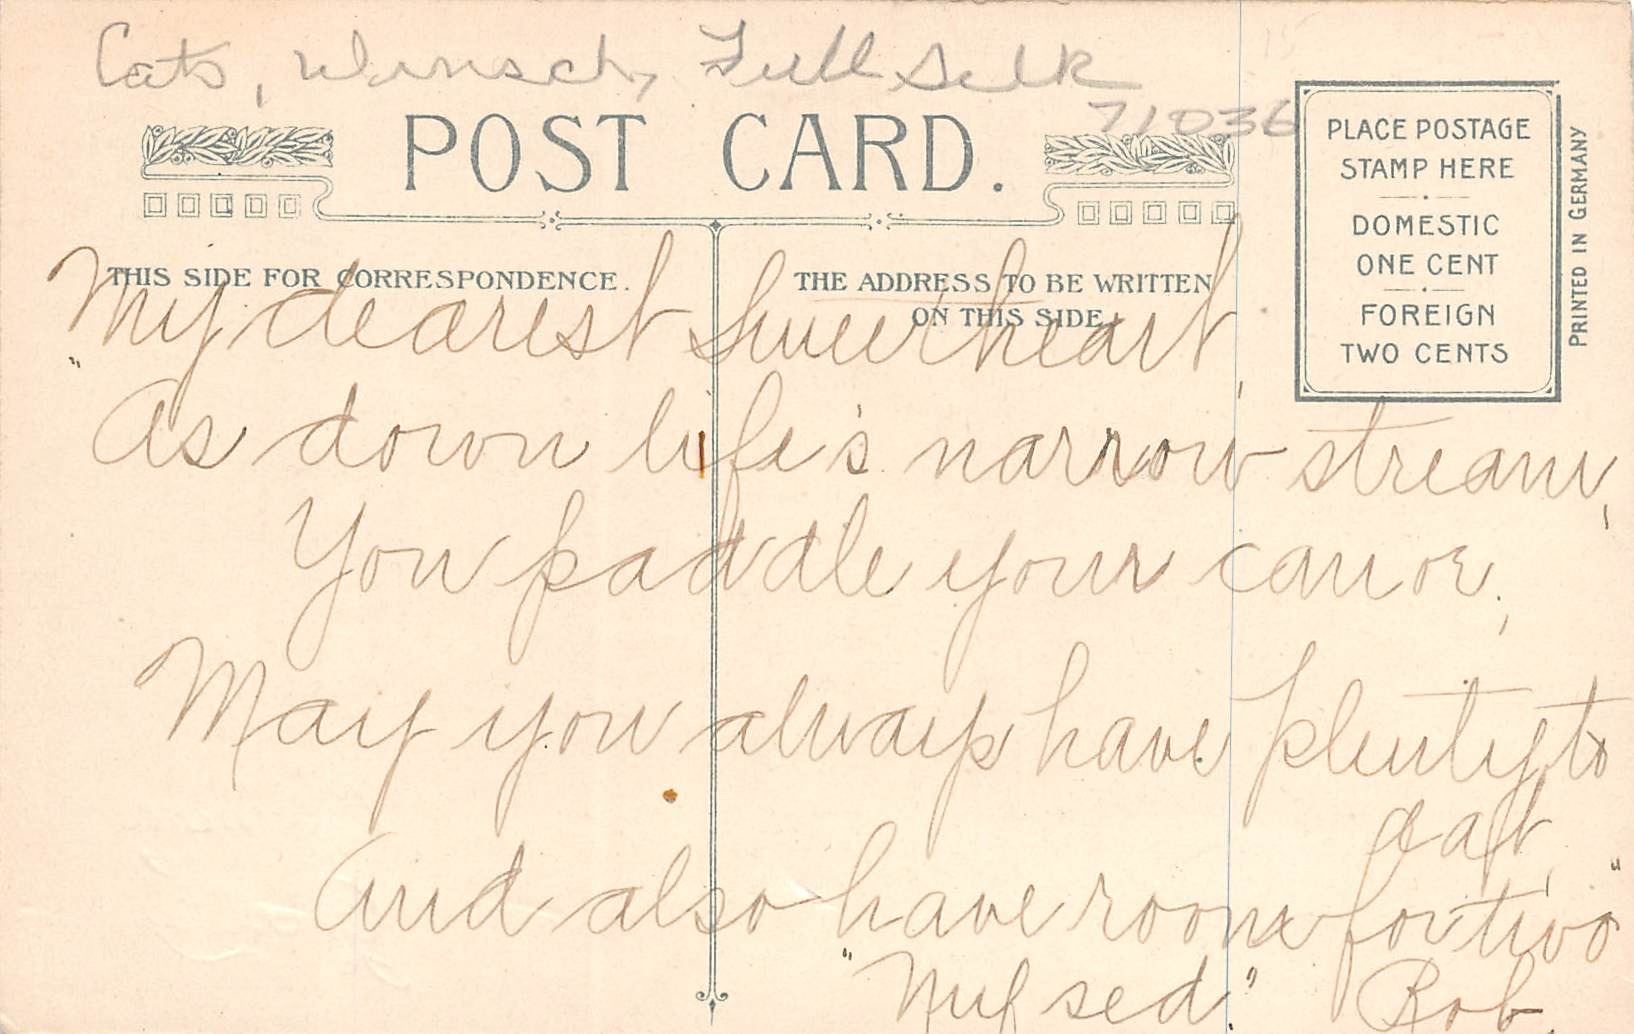 Cats, Wunsch, Full Silk
71036
POST CARD.
PLACE POSTAGE
STAMP HERE
DOMESTIC
ONE CENT
FOREIGN
TWO CENTS
PRINTED IN GERMANY
THIS SIDE FOR CORRESPONDENCE.
THE ADDRESS TO BE WRITTEN
ON THIS SIDE.
My dearest Sweetheart,
"As down life's narrow stream,
You paddle your canoe,
May you always have plenty to
eat,
And also have room for two"
"Nuf sed." Rob.